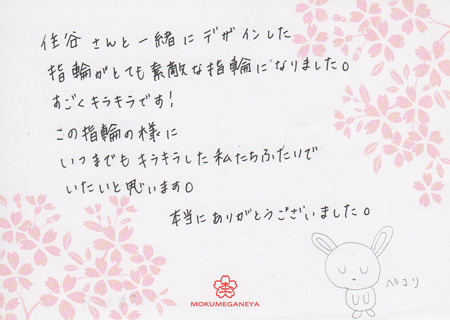 住谷さんと一緒にデザインした
指輪がとても素敵な指輪になりました。
すごくキラキラです!
この指輪の様に
いつまでもキラキラした私たちふたりで
いたいと思います。
本当にありがとうございました。
ペコリ
MOKUMEGANEYA